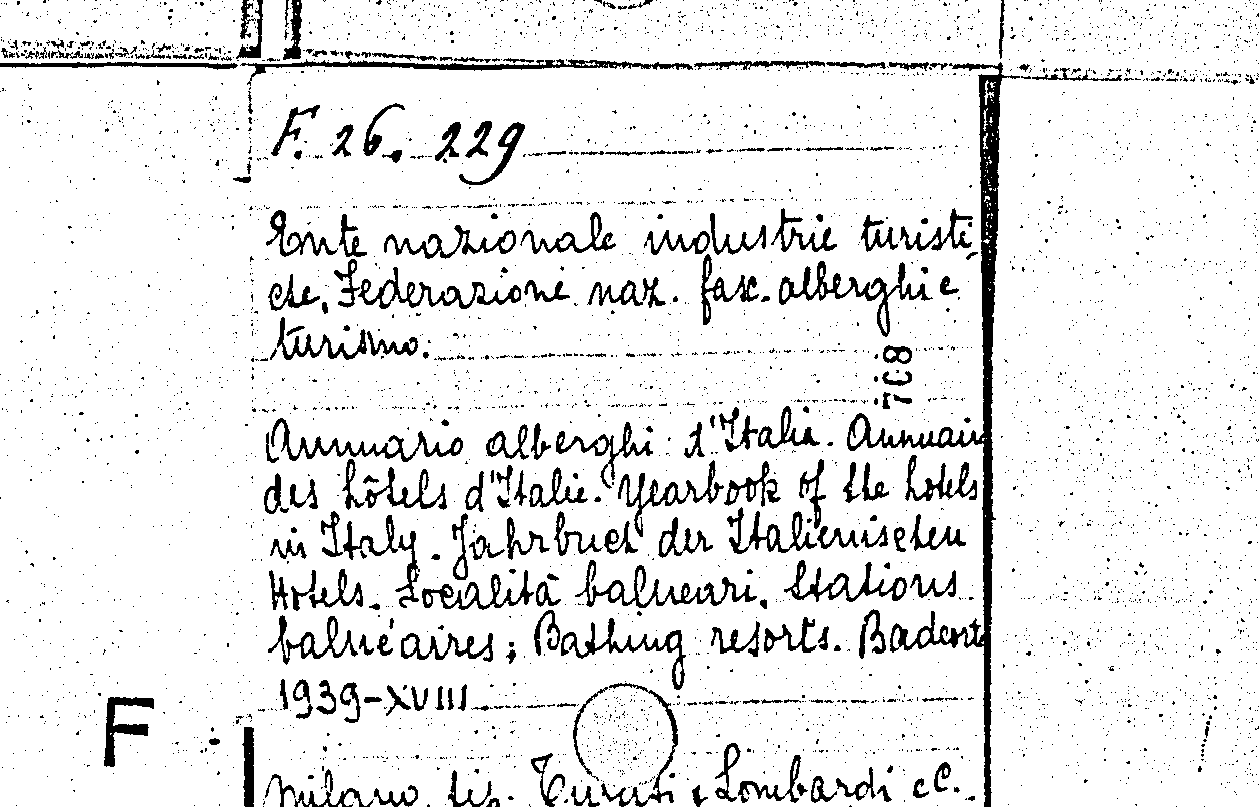 F. 26. 229
Ente nazionale industrie turisti
che. Federazione naz. fasc. alberghi e
turismo.
Annuario alberghi d'Italia. Annuair
des hôtels d'Italie. Yearbook of the hotels
in Italy. Jahrbuch der Italienischen
Hotels. Località balneari. Stations
balnéaires; Bathing resorts. Badeorte
1939-XVIII.
F
Milano, tip. Turati, Lombardi e C.